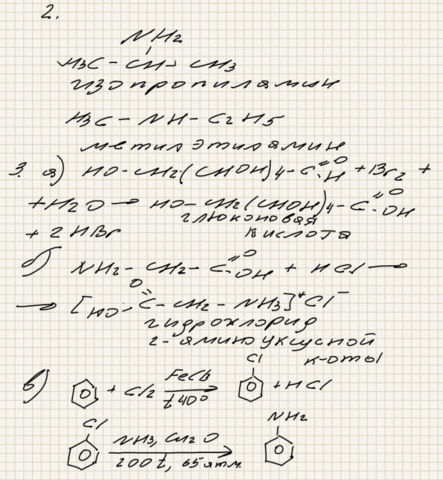 2.
NH2
H3C - CH - CH3
изопропиламин
H3C - NH - C2H5
метилэтиламин
3. а) HO-CH2(CHOH)4-C=O H + Br2 +
+ H2O → HO-CH2(CHOH)4-C=O OH
глюконовая
+ 2HBr кислота
б) NH2 - CH2 - C=O OH + HCl →
→ [HO-C(=O)-CH2-NH3]+Cl-
гидрохлорид
2-аминоуксусной
к-оты
в) + Cl2 FeCl3 t40° Cl + HCl
Cl NH3, Cu2O 200t, 65атм. NH2